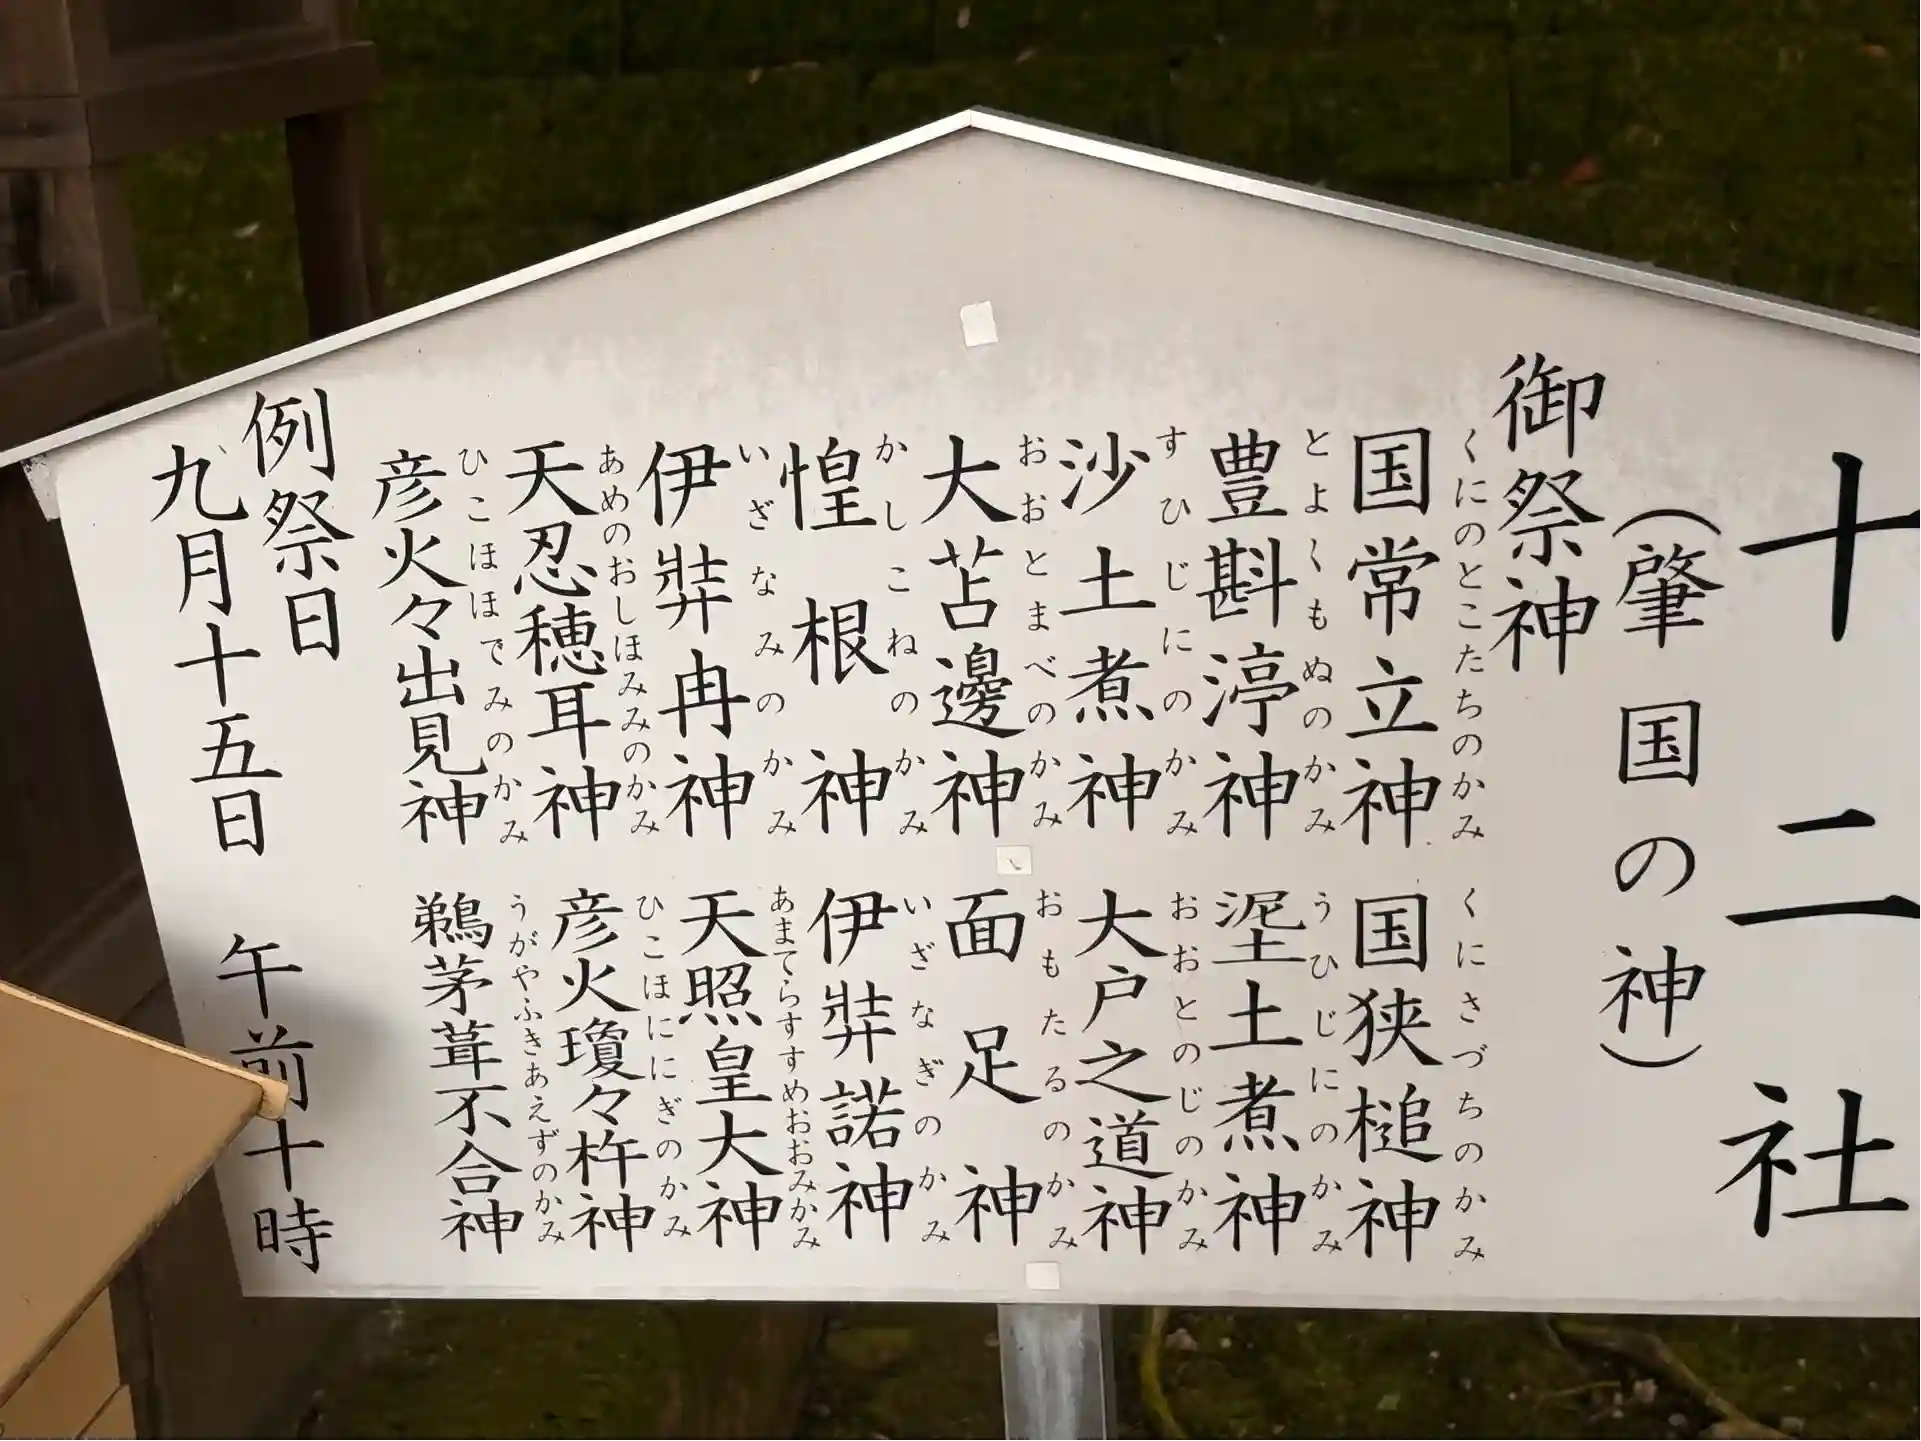 十二社
（肇国の神）
御祭神
くにのとこたちのかみ
国常立神
くにさづちのかみ
国狭槌神
とよくもぬのかみ
豊斟渟神
うひじにのかみ
埿土煮神
すひじにのかみ
沙土煮神
おおとのじのかみ
大戸之道神
おおとまべのかみ
大苫邊神
おもたるのかみ
面足神
かしこねのかみ
惶根神
いざなぎのかみ
伊弉諾神
いざなみのかみ
伊弉冉神
あまてらすすめおおみかみ
天照皇大神
あめのおしほみみのかみ
天忍穂耳神
ひこほににぎのかみ
彦火瓊々杵神
ひこほほでみのかみ
彦火々出見神
うがやふきあえずのかみ
鵜茅葺不合神
例祭日
九月十五日　午前十時